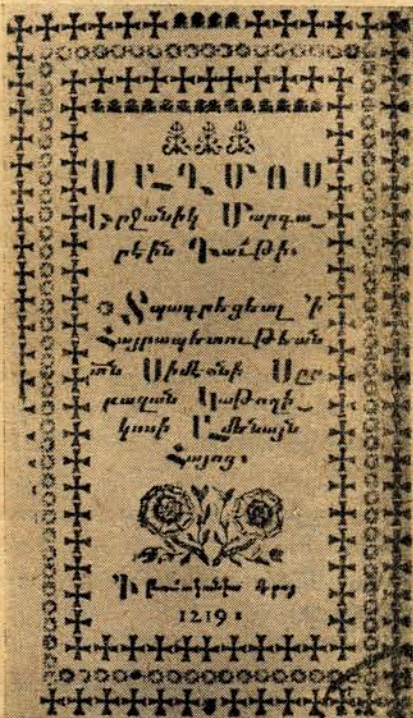 ՍԱՂՄՈՍ
Երջանիկ Մարգա_
րէին Դաւթի։
Տպագրեցեալ ՚ի
Հայրապետութեան
տն Սիմէօնի Սըր
բազան Կաթողի_
կոսի Ամենայն
Հայոց։
՚Ի թուականիս
1219 ։